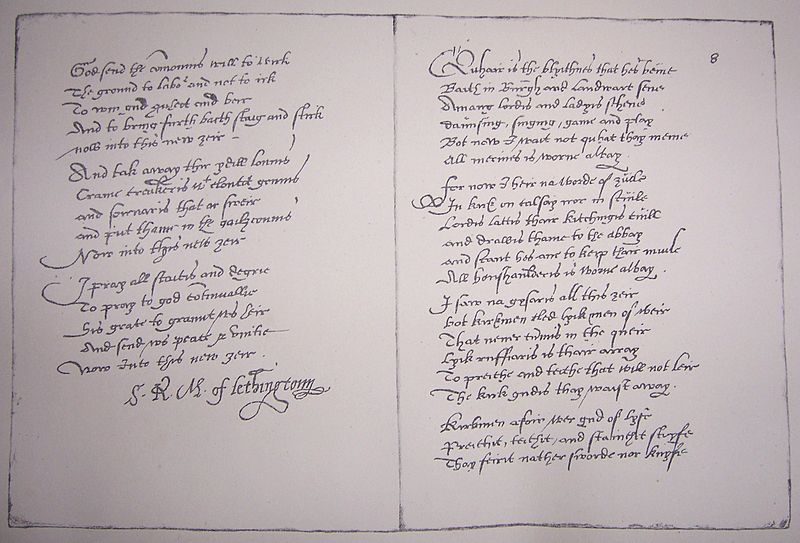 God send the comonnis will to wirk
The ground to labor and not to irk
To win gud quheit and beir
And to bring furth baith staig and stirk
Now into this new zeir
And tak away thir ydill lounis
Crame creukeris with clowtit gounis
and sornaris that ar sweir
and put thame in the gailzeounis
Now into this new zeir
I pray all staitis and degrie
To pray to god continuallie
his grace to grannt ws heir
And send ws peace & vnitie
Now Into this new zeir.
S. R. M. of lethingtoun
8
Quhair is the blythnes that hes beine
Baith in Burgh and Landwart sene
Amang lordis and Ladyis schene
daunsing, singing, game and play
Bot now I wait not quhat thay meine
All mirrines is worne away.
for now I heir na worde of zuile
In kirk on calsay nor in scuile
Lordis lattis thair kitchingis cuill
and drawis thame to the abbay
and scant hes ane to keip thair muile
All houshaulderis is worne away.
I saw na gysaris all this zeir
bot kirkmen cled lyik men of weir
That never cumis in the queir
Lyik ruffiaris is thair array
To preiche and teiche that will not leir
The kirk gudis thay waist away.
Kirkmen afoir wer gud of lyfe
Preichit, teichit, and stainchit stryfe
Thay feirit nather sworde nor knyfe